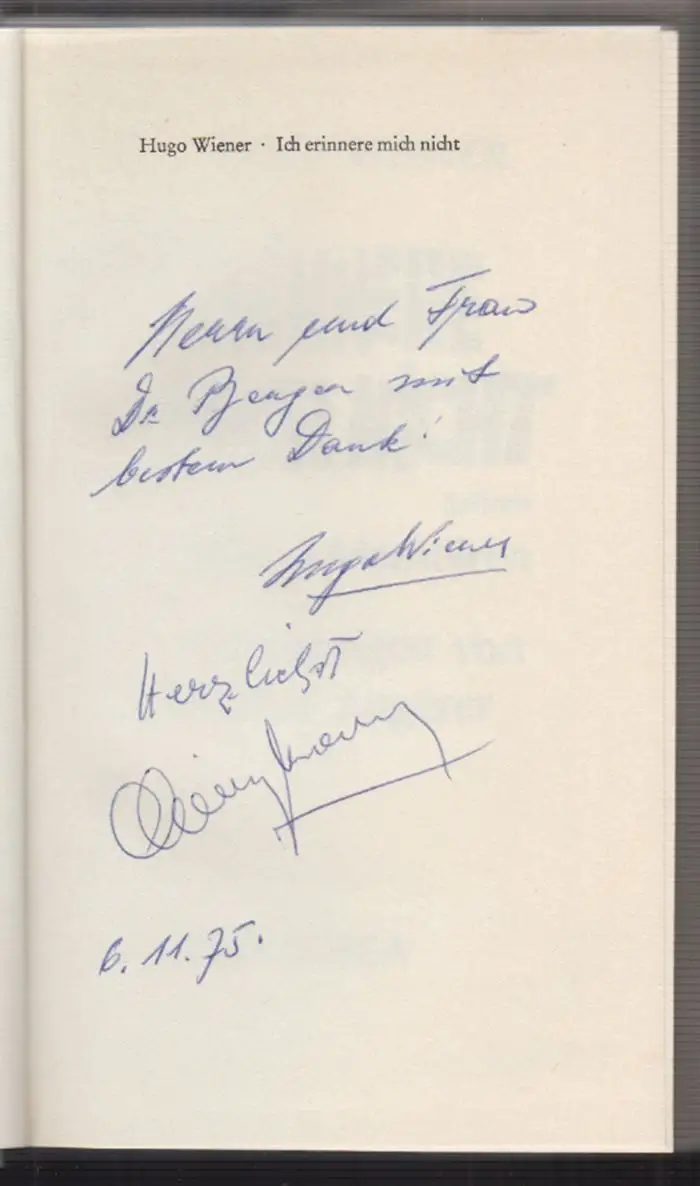 Hugo Wiener · Ich erinnere mich nicht
Herrn und Frau
Dr. mit
bestem Dank!
Hugo Wiener
Herzlichst
6. 11. 75.